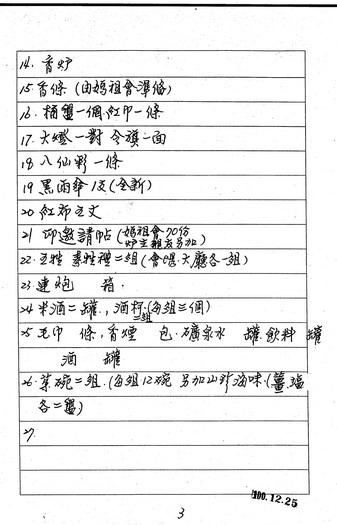 14. 香炉
15. 香條 (由媽祖會準備)
16. 桶盤一個,紅巾一條
17. 大燈一對 令旗一面
18 八仙彩一條
19 黑雨傘1支(全新)
20 紅布之文
21 印邀請帖 (媽祖會70份
炉主親友另加)
22. 五牲 素牲禮=組 (會場.大廳各一組)
23. 連炮 箱.
24. 米酒=罐., 酒杯.(每組三個)
三組
25. 毛巾 條,香煙 包.礦泉水 罐.飲料 罐
酒 罐
26. 菜碗=組.(每組12碗 另加山珍海味.(薑塩
各二盤)
27.
100.12.25
3